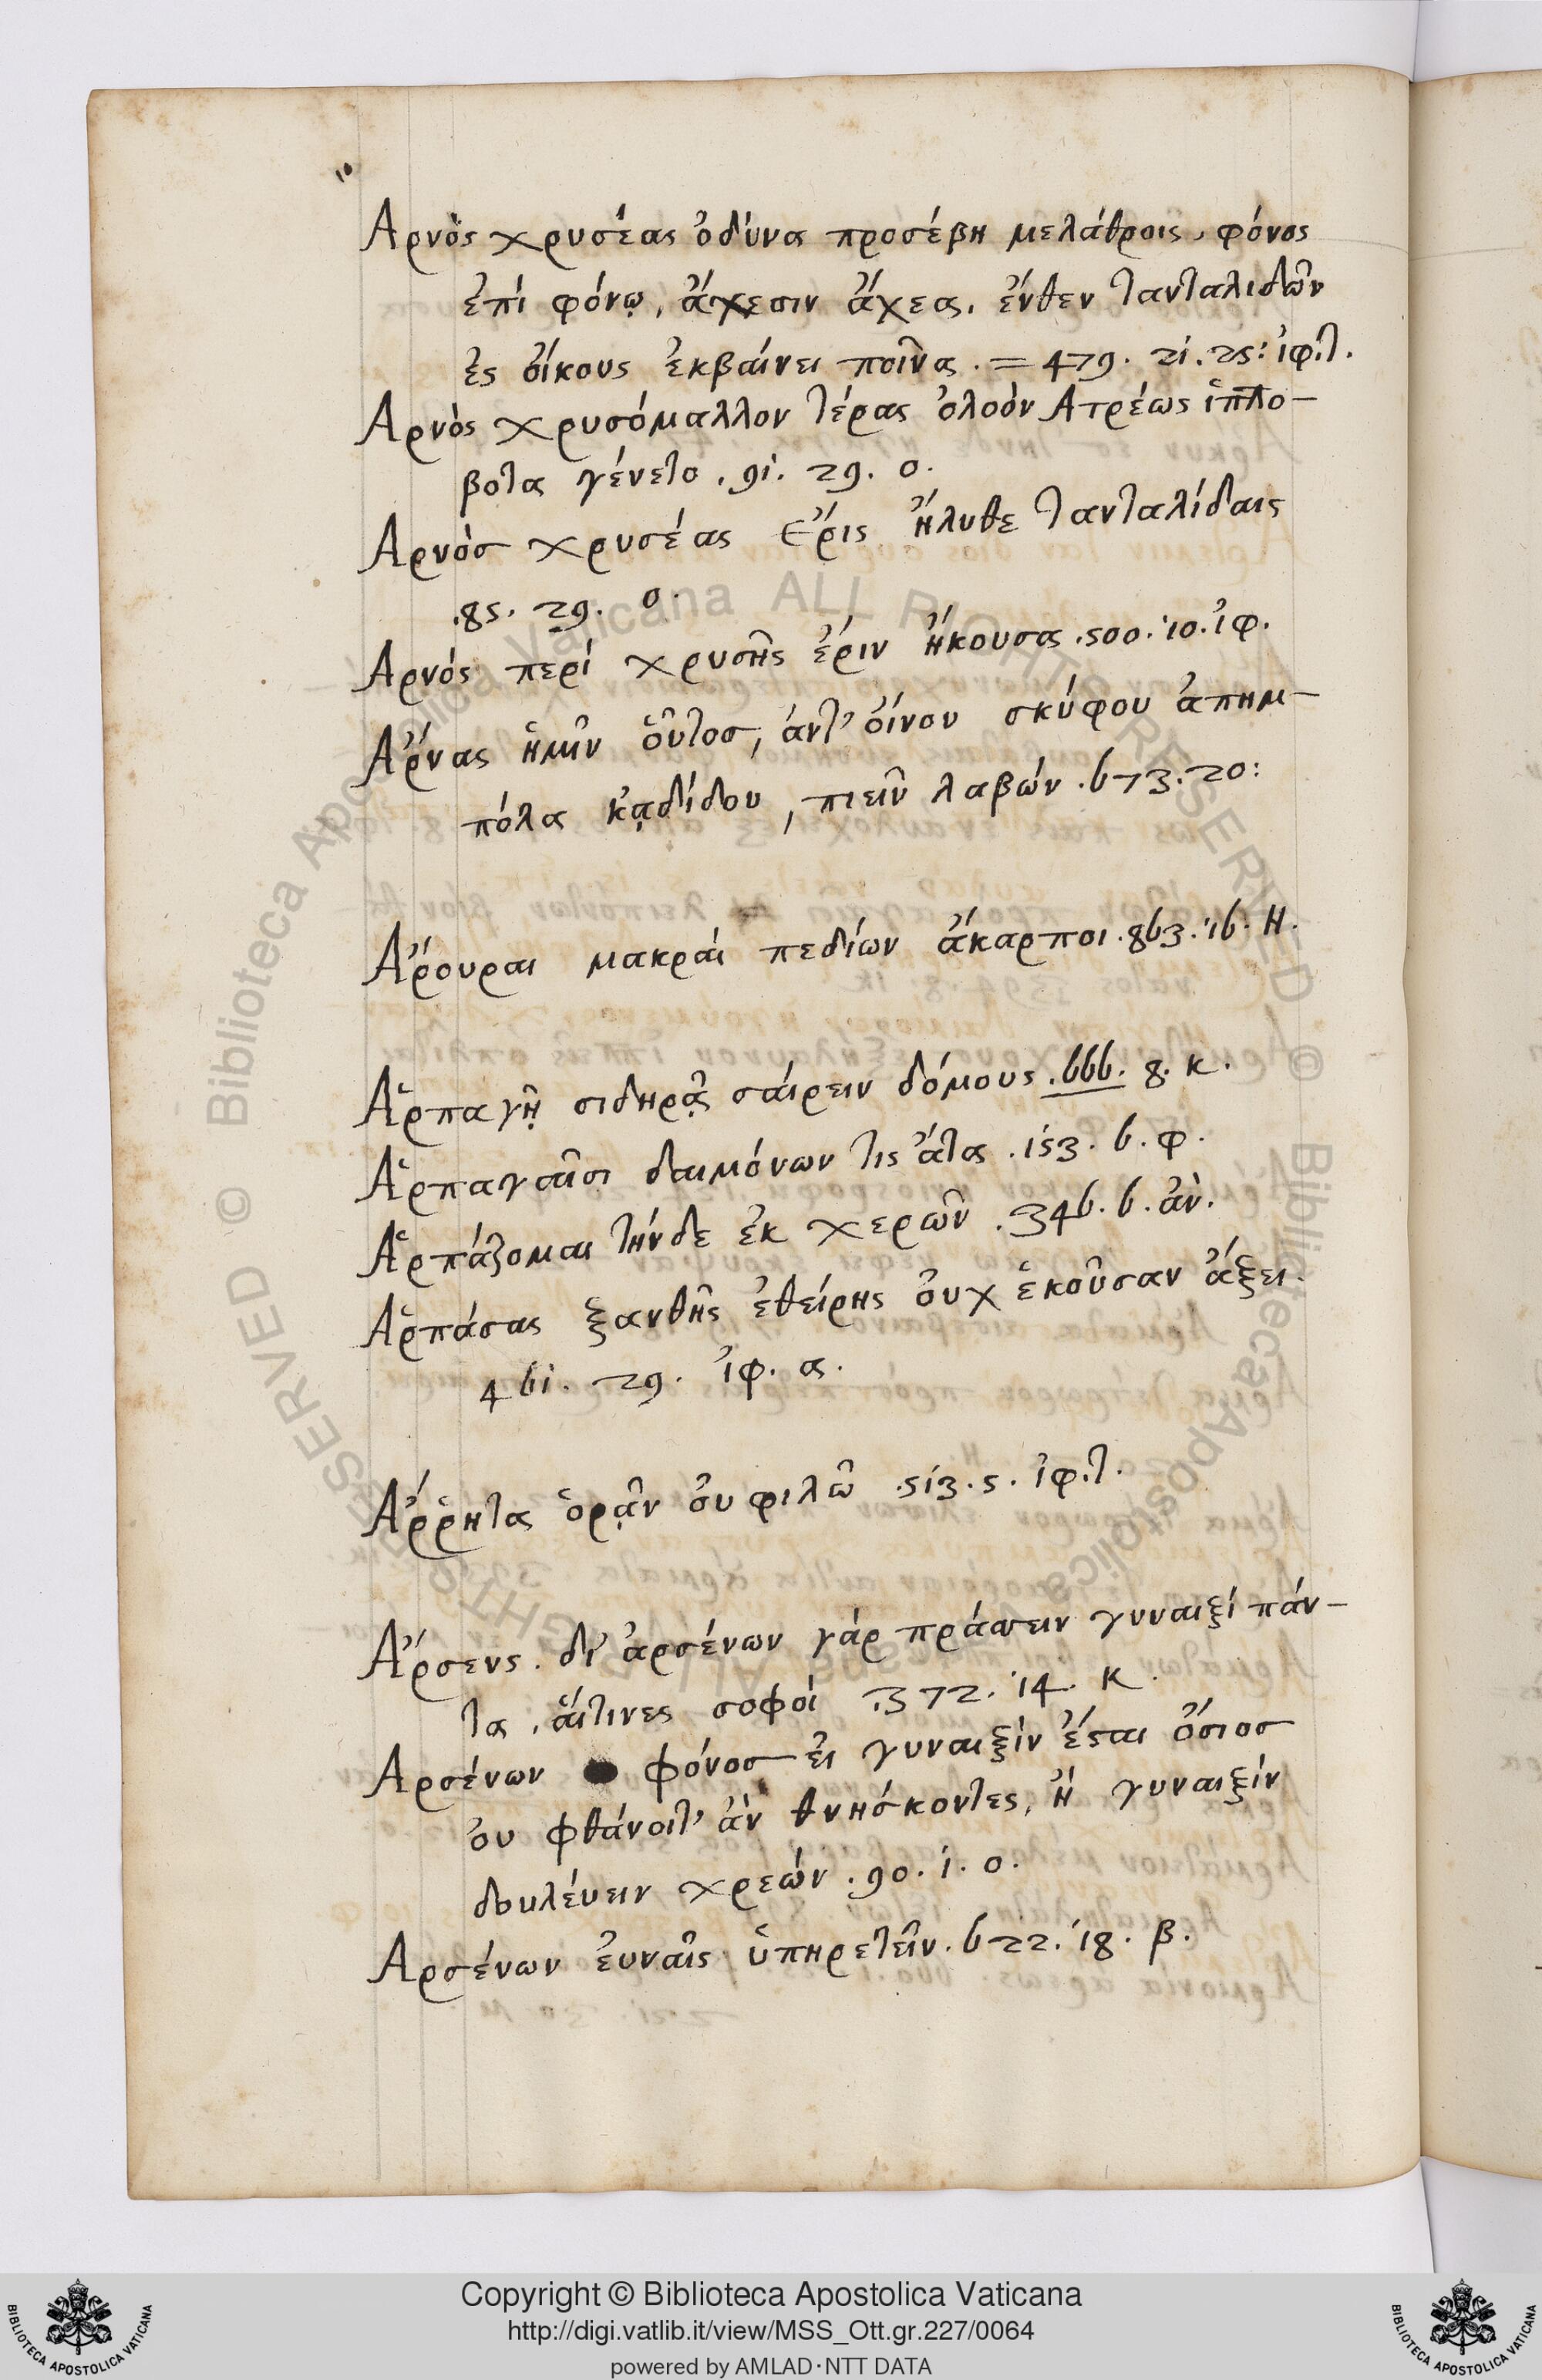 Αρνὸς χρυσέας ὀδύνα προσέβη μελάθροις, φόνος
ἐπὶ φόνῳ, ἄχεσιν ἄχεα, ἔνθεν τανταλιδῶν
ἐς οἴκους ἐκβαίνει ποῖνα . = 479. 21. 25: ἰφ.τ.
Αρνὸς χρυσόμαλλον τέρας ὀλοὸν Ατρέως ἱππο-
βότα γένετο . 91. 29. ο.
Αρνὸσ χρυσέας ἔρις ἤλυθε τανταλίδαις
.85. 29. ο.
Αρνὸς περὶ χρυσῆς ἔριν ἤκουσα .500. 10. ἰφ.
Ἄρνας ἡμῖν οὗτοσ, ἀντ' οἴνου σκύφου ἀπημ-
πόλα κᾀδίδου, πιεῖν λαβών . 673. 20:
Ἄρουραι μακραὶ πεδίων ἄκαρποι . 863. 16. Η.
Ἁρπαγῇ σιδηρᾷ σαίρειν δόμους . 666. 8. κ.
Ἁρπαγαῖσι δαιμόνων τις ἄτα . 153. 6. φ.
Ἁρπάζομαι τήνδε ἐκ χερῶν . 346. 6. ἀν.
Ἁρπάσας ξανθῆς ἐθείρης οὐχ ἑκοῦσαν ἄξει.
461. 29. ἰφ. α.
Ἄῤῥητα ὁρᾷν οὐ φιλῶ . 513. 5. ἰφ.τ.
Ἄρσενς . δι' ἀρσένων γὰρ πράσσειν γυναιξὶ πάν-
τα, αἵτινες σοφαὶ . 372. 14. κ.
Αρσένων φόνοσ εἰ γυναιξὶν ἔσται ὅσιοσ
οὐ φθάνοιτ' ἂν θνήσκοντες, ἢ γυναιξὶν
δουλεύειν χρεών . 90. 1. ο.
Αρσένων εὐναῖς ὑπηρετεῖν . 622. 18. β.
Copyright © Biblioteca Apostolica Vaticana
http://digi.vatlib.it/view/MSS_Ott.gr.227/0064
powered by AMLAD·NTT DATA
© Biblioteca Apostolica Vaticana ALL RIGHTS RESERVED © Biblioteca Apostolica Vaticana ALL RIGHTS RESERVED
BIBLIOTECA APOSTOLICA VATICANA
BIBLIOTECA APOSTOLICA VATICANA